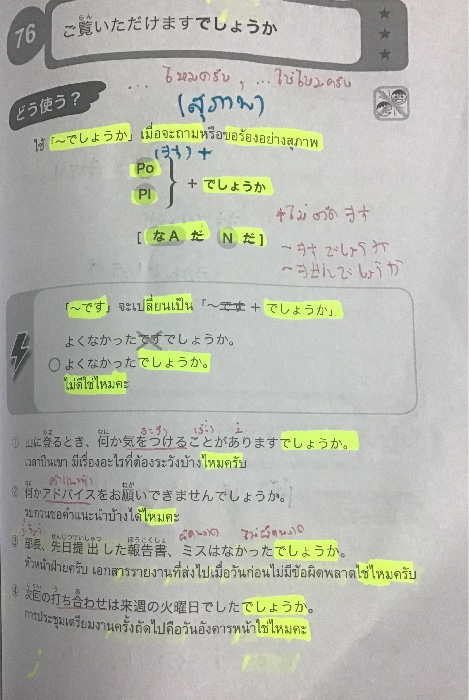 76 ご覧いただけますでしょうか
らん
... ไหมครับ, ... ใช่ไหมครับ
どう使う？
(สุภาพ)
ใช้「～でしょうか」เมื่อจะถามหรือขอร้องอย่างสุภาพ
(ます) +
Po
Pl
+ でしょうか
[ なA だ N だ ]
*ไม่ตัด ます
～ますでしょうか
～ませんでしょうか
「～です」จะเปลี่ยนเป็น「～です + でしょうか」
よくなかったですでしょうか。
○ よくなかったでしょうか。
ไม่ดีใช่ไหมคะ
① 山に登るとき、何か気をつけることがありますでしょうか。
เวลาปีนเขา มีเรื่องอะไรที่ต้องระวังบ้างไหมครับ
คำแนะนำ
② 何かアドバイスをお願いできませんでしょうか。
รบกวนขอคำแนะนำบ้างได้ไหมคะ
せんじつていしゅつ ほうこくしょ ผิดพลาด ไม่ผิดพลาด
③ 部長、先日提出した報告書、ミスはなかったでしょうか。
หัวหน้าฝ่ายครับ เอกสารรายงานที่ส่งไปเมื่อวันก่อนไม่มีข้อผิดพลาดใช่ไหมครับ
④ 次回の打ち合わせは来週の火曜日でしたでしょうか。
การประชุมเตรียมงานครั้งถัดไปคือวันอังคารหน้าใช่ไหมคะ